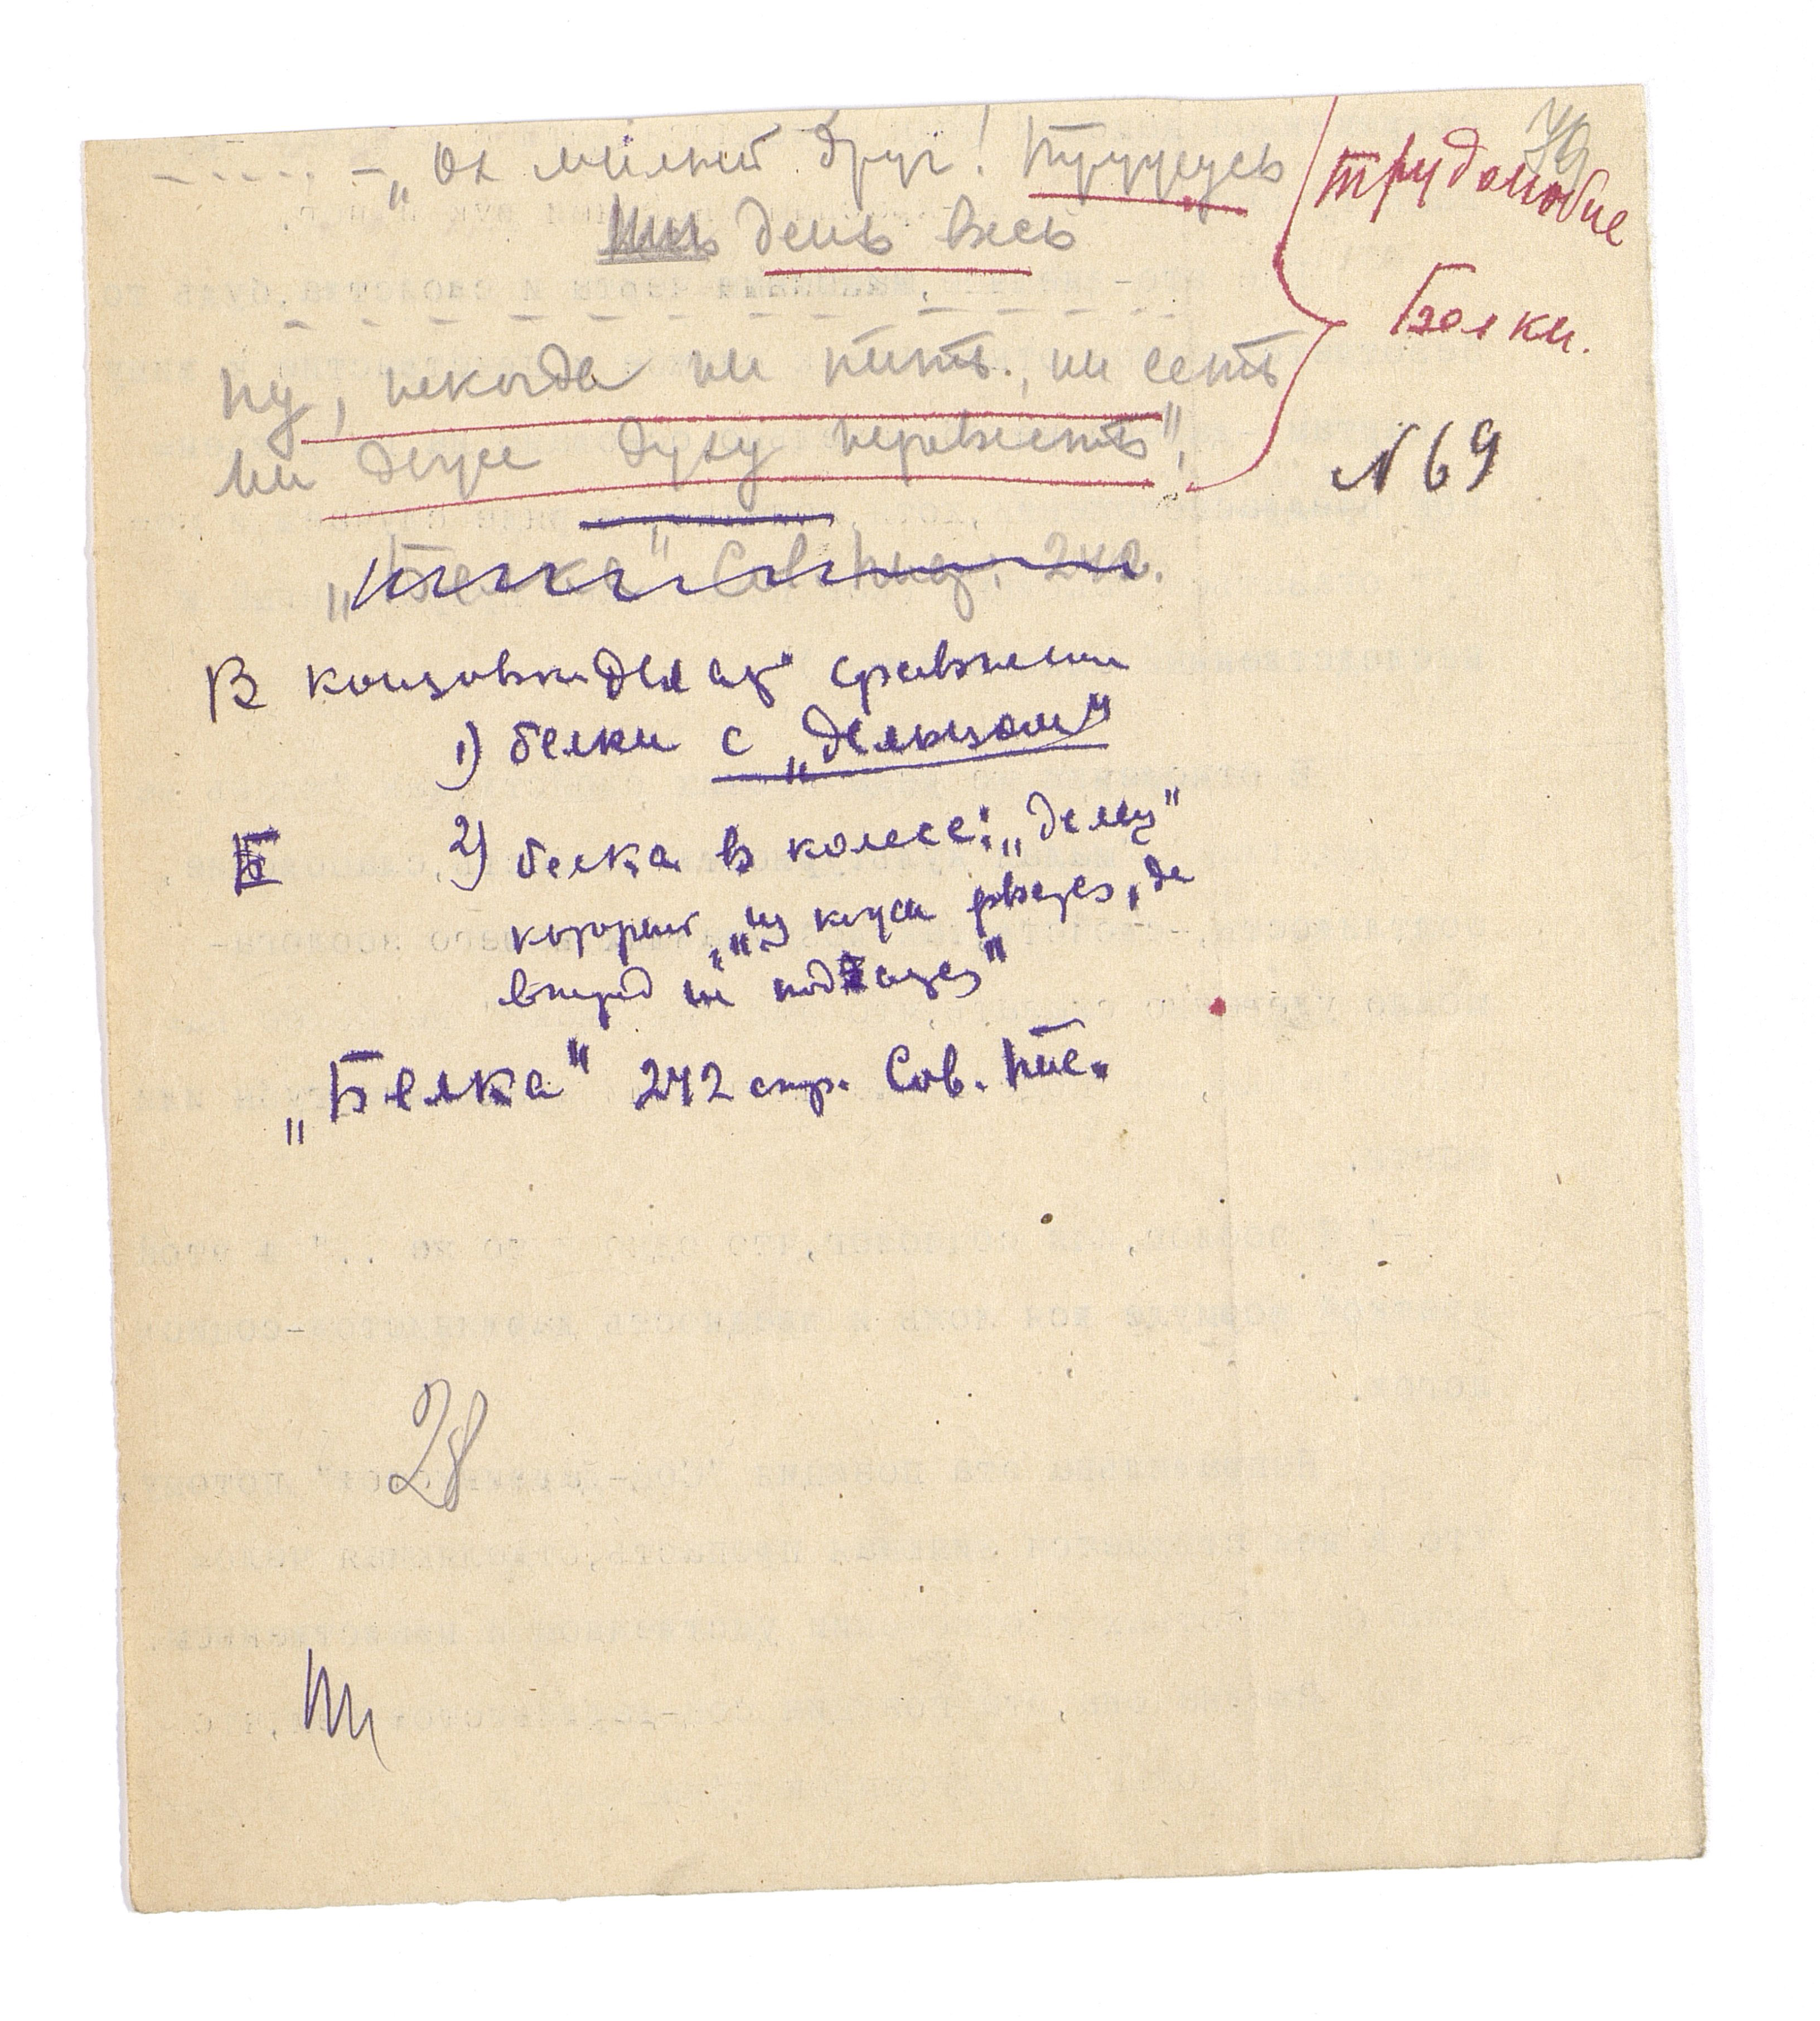 „Ох милый друг! тружусь
день весь
ну, некогда ни пить, ни есть
ни даже духу перевесть",
трудолюбие
Белки.
№69
„Белка" Сов. пис. 242.
В концовке дел аз сравнения
1) белки с „дельцом"
2) белка в колесе: „делец"
Б
который „из кожи рвется, да
вперед не подается"
„Белка" 242 стр. Сов. пис.
28